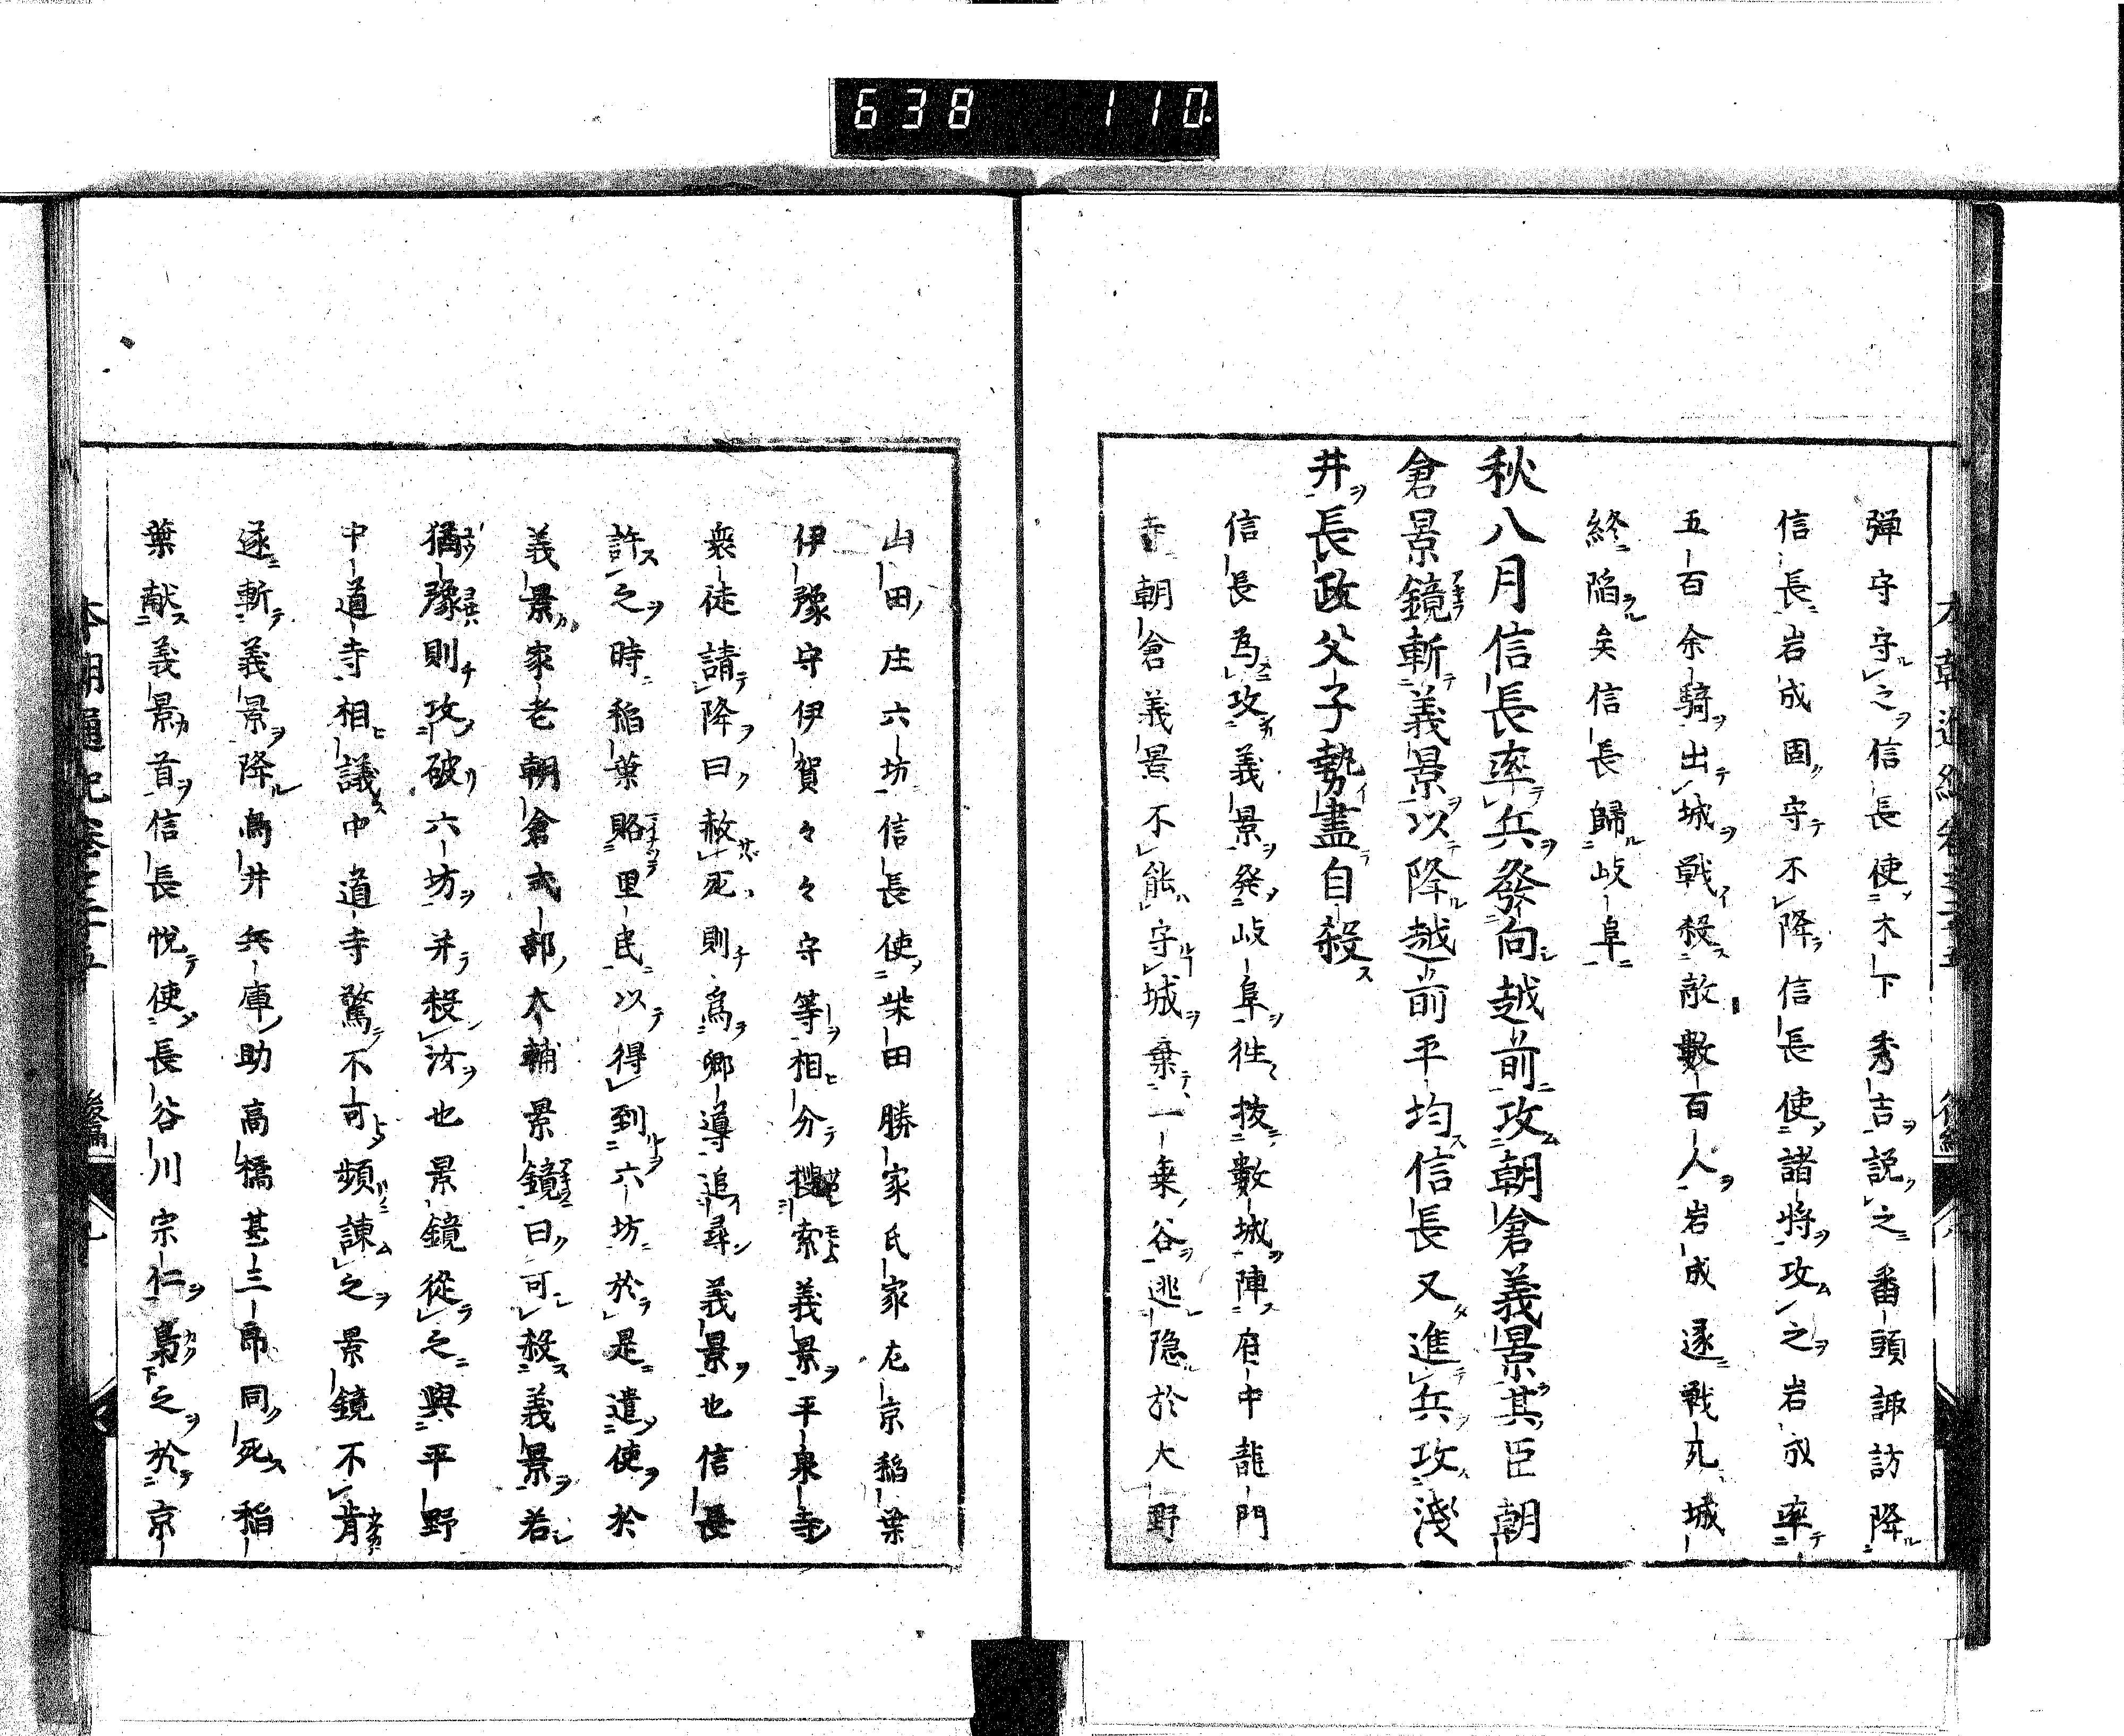 638 110
弾守守之信長使木下秀吉説之番頭諏訪降
信長岩成固守不降信長使諸将攻之岩成率
五百余騎出城戦殺敵數百人岩成遂戦死城
終陥矣信長歸岐阜
秋八月信長率兵發向越前攻朝倉義景其臣朝
倉景鏡斬義景以降越前平均信長又進兵攻淺
井長政父子勢盡自殺
信長為攻義景発岐阜徃拔數城陣府中龍門
寺朝倉義景不能守城棄一乗谷逃隠於大野
山田庄六坊信長使柴田勝家氏家左京稲葉
伊豫守伊賀々々守等相分搜索義景平泉寺
衆徒請降曰赦死則爲郷導追尋義景也信長
許之時稲葉賂里民以得到六坊於是遣使於
義景家老朝倉式部大輔景鏡曰可殺義景若
猶豫則攻破六坊并殺汝也景鏡從之與平野
中道寺相議中道寺驚不可頻諌之景鏡不肯
遂斬義景降鳥井兵庫助高橋甚三郎同死稲
葉献義景首信長悦使長谷川宗仁梟之於京
本朝通紀巻之二十五 後編 九